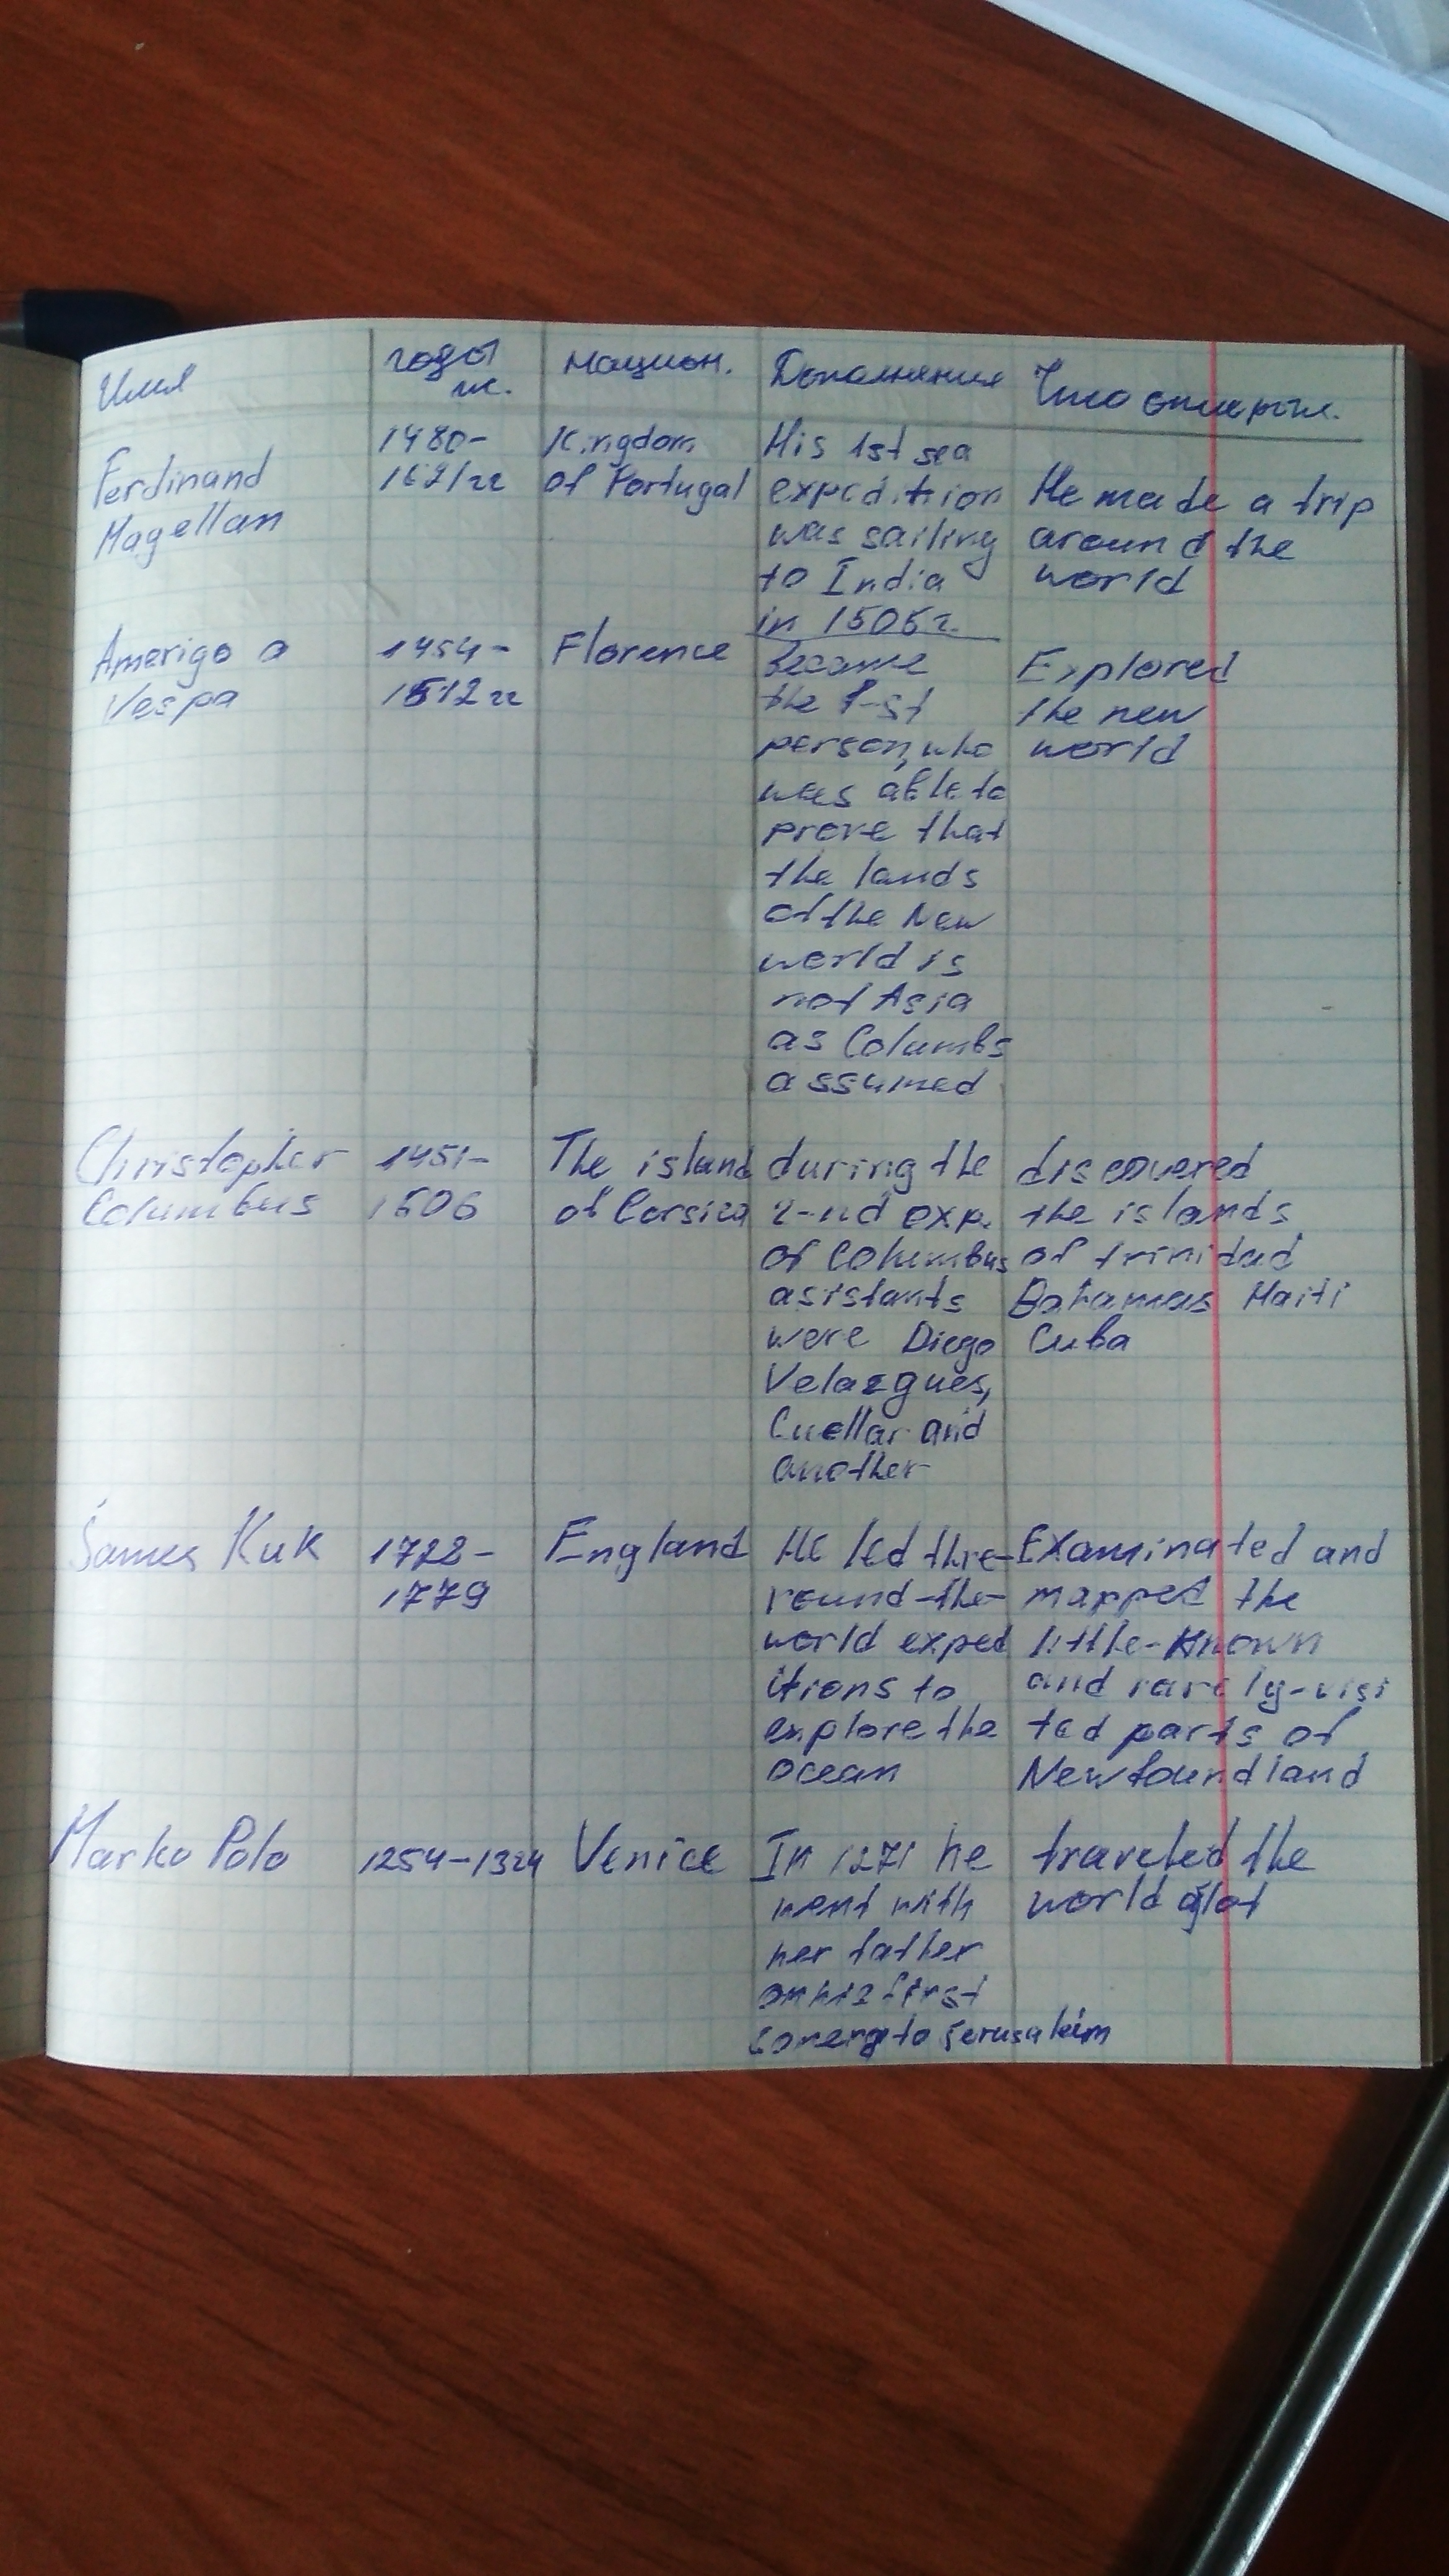 Имя
годы
ж.
национ.
Дополнения
Что открыл.
Ferdinand
Magellan
1480-
1521гг
Kingdom
of Portugal
His 1st sea
expedition
was sailing
to India
in 1505г.
He made a trip
around the
world
Amerigo a
Vespa
1454-
1512гг
Florence
Became
the 1-st
person, who
was able to
prove that
the lands
of the New
world is
not Asia
as Columbs
assumed
Explored
the new
world
Christopher
Columbus
1451-
1506
The island
of Corsica
during the
2-nd exp.
of Columbus
asistants
were Diego
Velazgues,
Cuellar and
another
discovered
the islands
of trinidad
Bahamas Haiti
Cuba
James Kuk
1728-
1779
England
He led thre-
round-the-
world exped
itions to
explore the
ocean
Examinated and
mapped the
little-known
and rarely-visi
ted parts of
Newfoundland
Marko Polo
1254-1324
Venice
In 1271 he
went with
her father
on his first
to Jerusaleim
traveled the
world alot